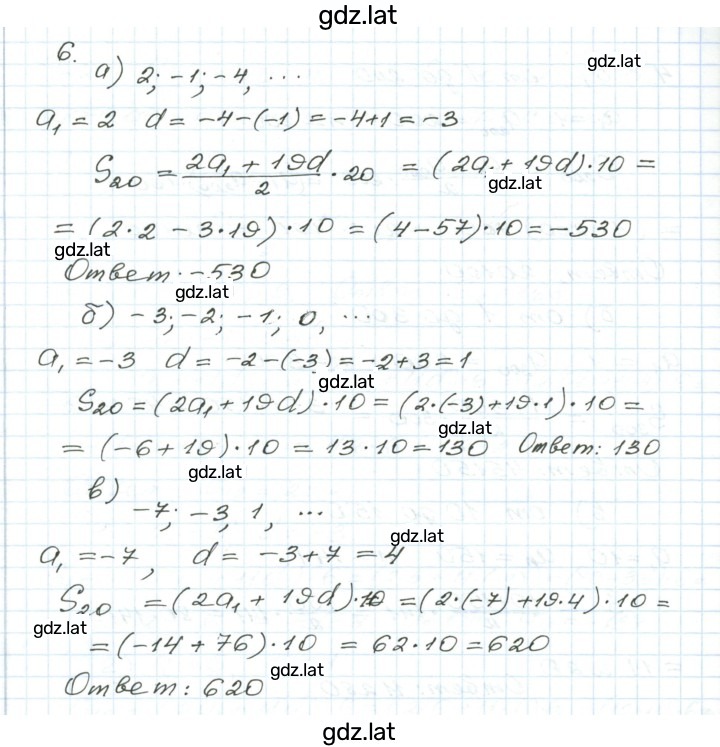 gdz.lat
6.
а) 2; -1; -4, ...
gdz.lat
a₁ = 2 d = -4-(-1) = -4+1 = -3
S₂₀ = (2a₁ + 19d)/2 · 20 = (2a₁ + 19d)·10 =
gdz.lat
= (2·2 - 3·19)·10 = (4-57)·10 = -530
gdz.lat
Ответ: -530
gdz.lat
б) -3; -2; -1; 0, ...
a₁ = -3 d = -2-(-3) = -2+3 = 1
gdz.lat
S₂₀ = (2a₁ + 19d)·10 = (2·(-3)+19·1)·10 =
gdz.lat
= (-6+19)·10 = 13·10 = 130 Ответ: 130
gdz.lat
в)
-7; -3, 1, ...
gdz.lat
a₁ = -7, d = -3+7 = 4
S₂₀ = (2a₁ + 19d)·10 = (2·(-7)+19·4)·10 =
gdz.lat
= (-14+76)·10 = 62·10 = 620
gdz.lat
Ответ: 620
gdz.lat